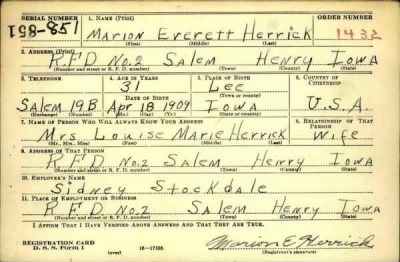 SERIAL NUMBER 1. NAME (Print) ORDER NUMBER
158-851 Marion Everett Herrick 1432
(First) (Middle) (Last)
2. ADDRESS (Print)
R.F.D No. 2 Salem Henry Iowa
(Number and street or R. F. D. number) (Town) (County) (State)
3. TELEPHONE 4. AGE IN YEARS 5. PLACE OF BIRTH 6. COUNTRY OF CITIZENSHIP
31 Lee
(Town or county)
DATE OF BIRTH
Salem 19B Apr 18 1909 Iowa U.S.A.
(Exchange) (Number) (Mo.) (Day) (Yr.) (State or country)
7. NAME OF PERSON WHO WILL ALWAYS KNOW YOUR ADDRESS 8. RELATIONSHIP OF THAT PERSON
Mrs Louise Marie Herrick Wife
(Mr., Mrs., Miss) (First) (Middle) (Last)
9. ADDRESS OF THAT PERSON
R.F.D No. 2 Salem Henry Iowa
(Number and street or R. F. D. number) (Town) (County) (State)
10. EMPLOYER'S NAME
Sidney Stockdale
11. PLACE OF EMPLOYMENT OR BUSINESS
R.F.D No. 2 Salem Henry Iowa
(Number and street or R. F. D. number) (Town) (County) (State)
I AFFIRM THAT I HAVE VERIFIED ABOVE ANSWERS AND THAT THEY ARE TRUE.
REGISTRATION CARD
D. S. S. Form 1 (over) 16-17105 Marion E Herrick
(Registrant's signature)